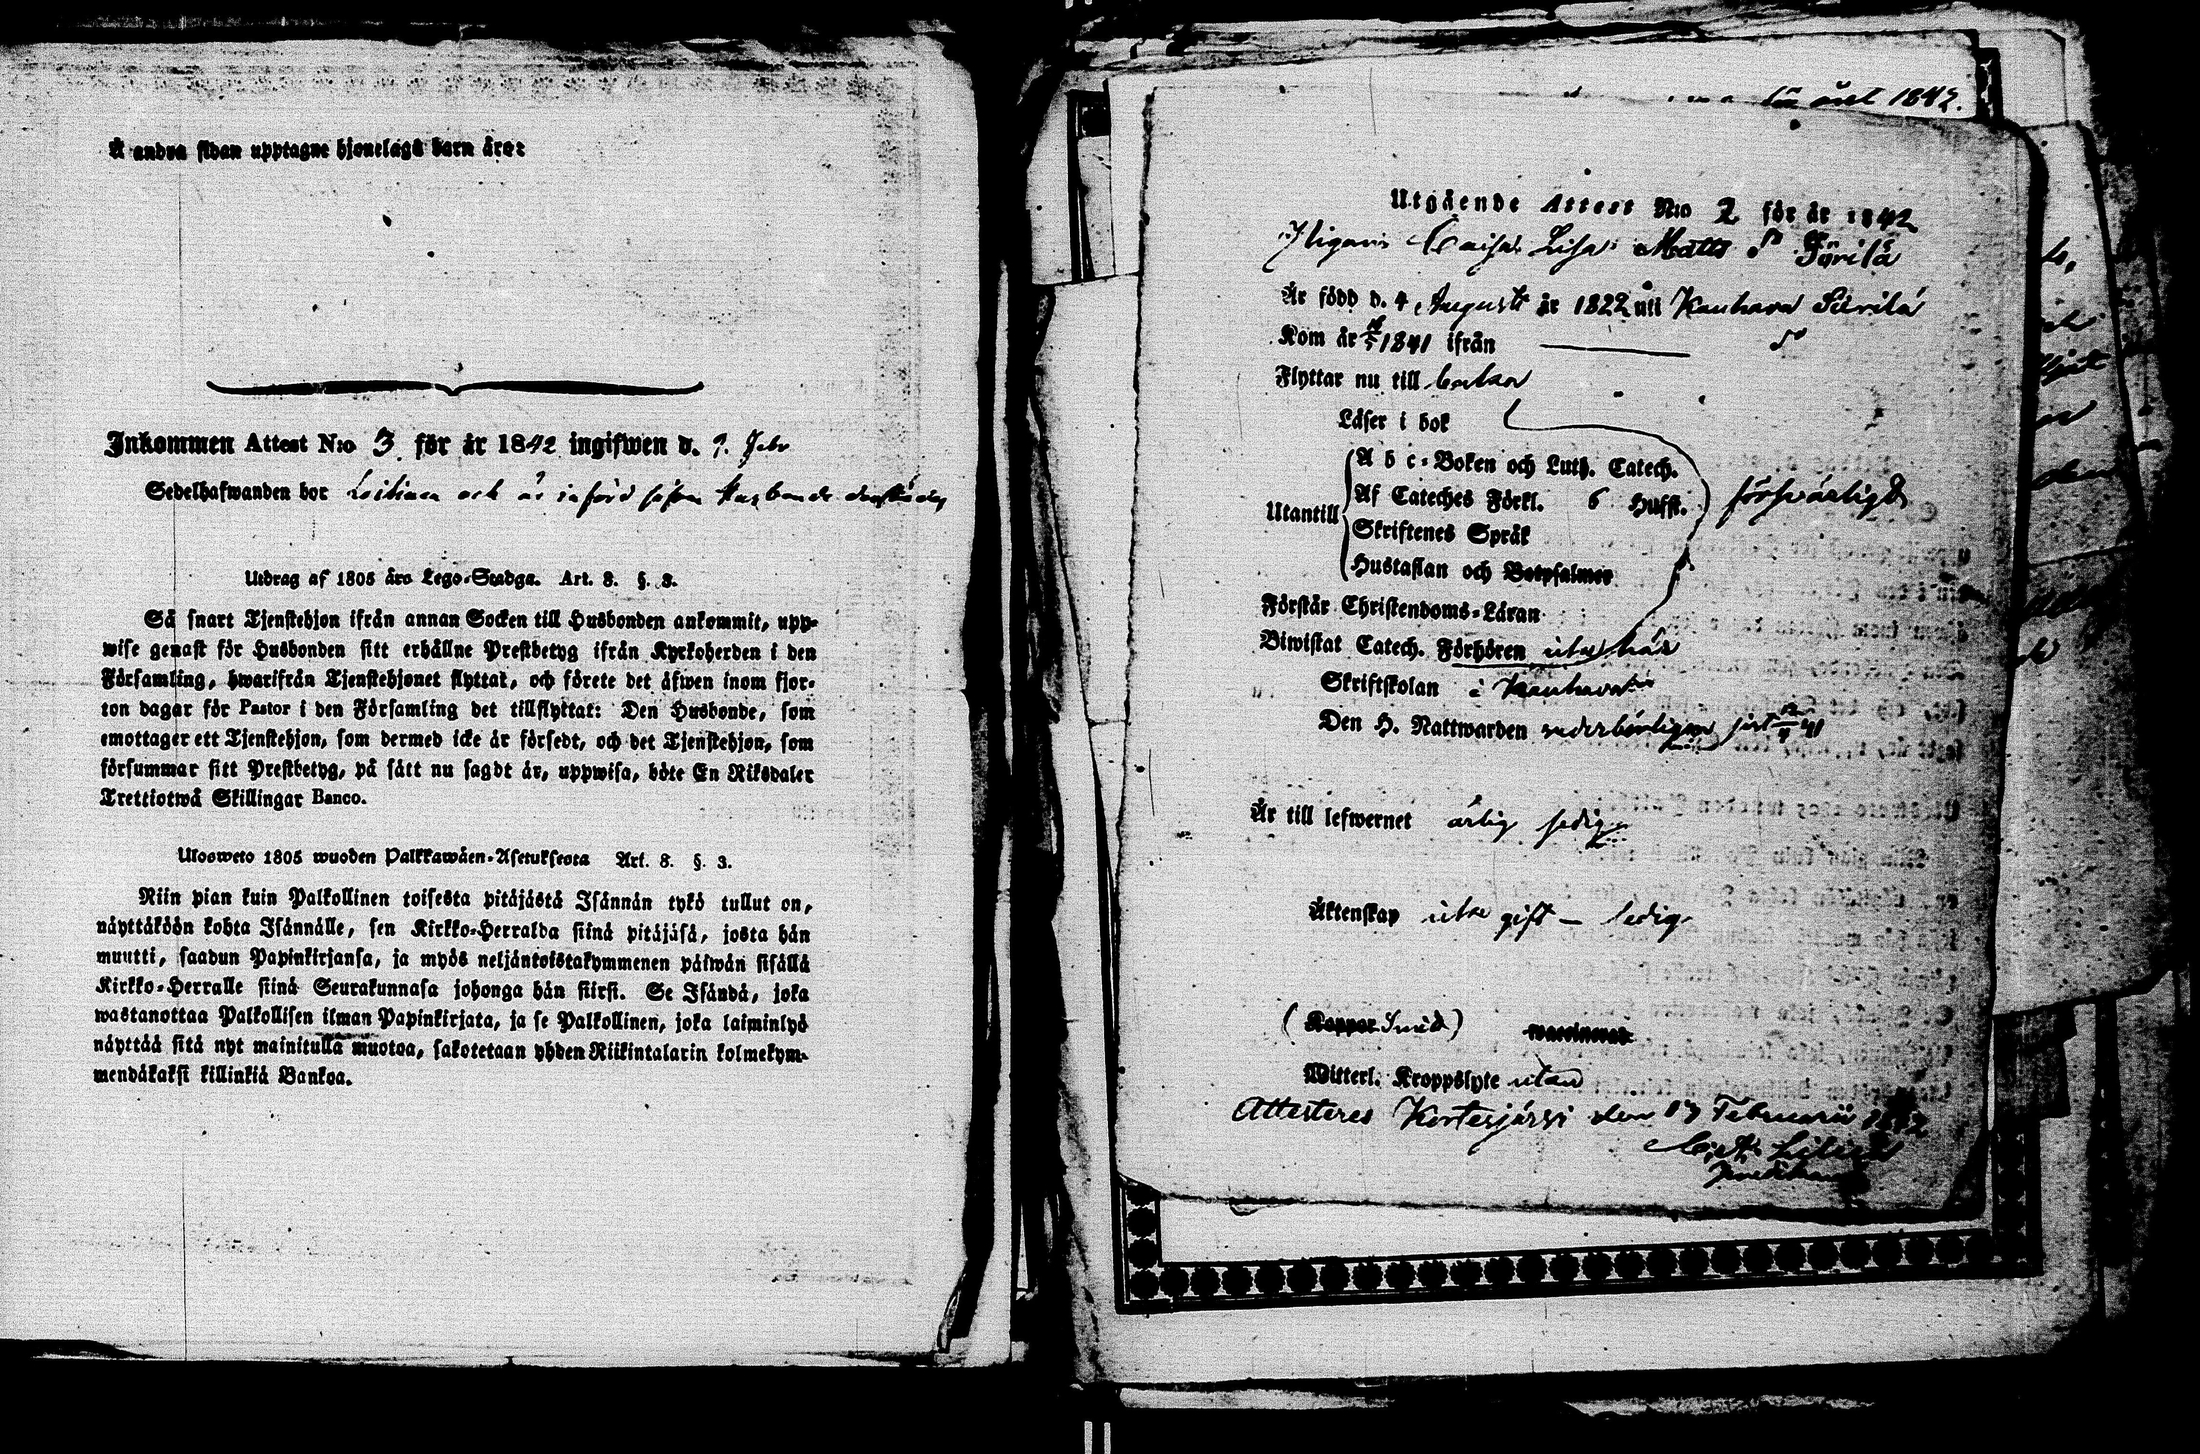 Å andra sidan upptagne hjonelags barn äro:
Inkommen Attest N:o 3 för år 1842 ingifwen d. 9. Febr
Sedelhafwanden bor och är införd såsom denstädes
Utdrag af 1805 års Lego-Stadga. Art. 8. §. 3.
Så snart Tjenstehjon ifrån annan Socken till Husbonden ankommit, upp-
wise genast för Husbonden sitt erhållne Prestbetyg ifrån Kyrkoherden i den
Församling, hwarifrån Tjenstehjonet flyttat, och förete det äfwen inom fjor-
ton dagar för Pastor i den Församling det tillflyttat: Den Husbonde, som
emottager ett Tjenstehjon, som dermed icke är försedt, och det Tjenstehjon, som
försummar sitt Prestbetyg, på sätt nu sagdt är, uppwisa, böte En Riksdaler
Trettiotwå Skillingar Banco.
Ulosweto 1805 wuoden Palkkawäen-Asetuksesta Art. 8. §. 3.
Niin pian kuin Palkollinen toisesta pitäjästä Isännän tykö tullut on,
näyttäköön kohta Isännälle, sen Kirkko-Herralda siinä pitäjäsä, josta hän
muutti, saadun Papinkirjansa, ja myös neljäntoistakymmenen päiwän sisällä
Kirkko-Herralle siinä Seurakunnasa johonga hän siirsi. Se Isändä, joka
wastanottaa Palkollisen ilman Papinkirjata, ja se Palkollinen, joka laiminlyö
näyttää sitä nyt mainitulla muotoa, sakotetaan yhden Riikintalarin kolmekym-
mendäkaksi killinkiä Bankoa.
året 1842.
Utgående Attest N:o 2 för år 1842
Pigan Caisa Lisa Matts dr Sürilä
Är född d. 4 Augusti år 1822 uti Kauhava Sürilä
Kom år 1841 ifrån
Flyttar nu till
Läser i bok
A b c-Boken och Luth. Catech.
Af Cateches Förkl. 6 Hufst. försvarligt
Utantill
Skriftenes Språk
Hustaflan och Botpsalmer
Förstår Christendoms-Läran
Biwistat Catech. Förhören icke här
Skriftskolan i Kauhava
Den H. Nattwarden wederbörligen sist 41
Är till lefwernet ärlig sedig
Äktenskap icke gift – ledig
(Koppor Smed) waccinerad
Witterl. Kroppslyte utan
Attesteres Kortesjärvi den 17 Februarii 1842